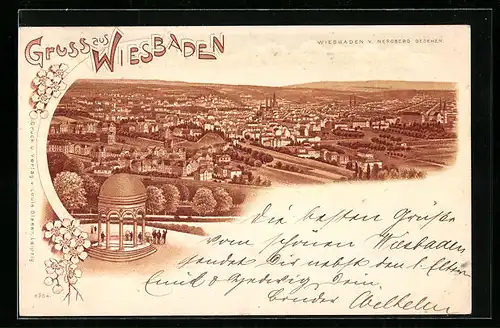 Gruss aus Wiesbaden
WIESBADEN V. NEROBERG GESEHEN.
Druck u. Verlag v. Louis Glaser, Leipzig.
Die besten Grüße
vom schönen Wiesbaden
sendet Dir nebst den l. Eltern
Emil & Hedwig Dein
Bruder Wilhelm